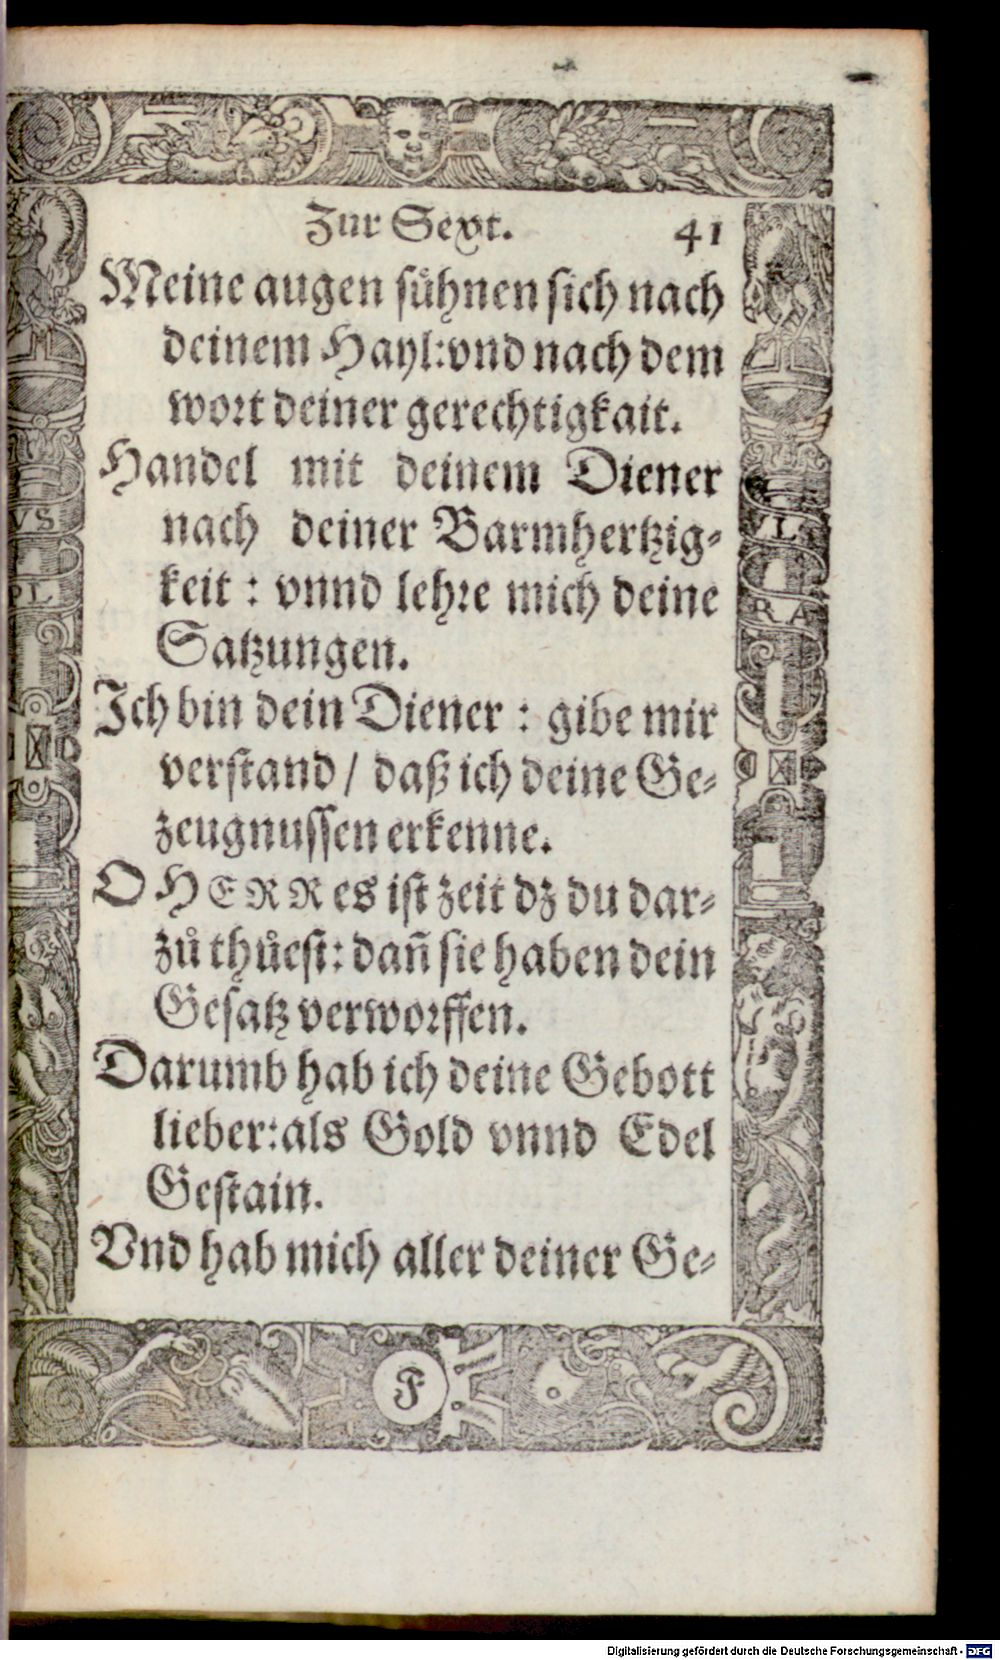 Zur Sext. 41
Meine augen sůhnen sich nach
deinem Hayl: vnd nach dem
wort deiner gerechtigkait.
Handel mit deinem Diener
nach deiner Barmhertzig-
keit : vnnd lehre mich deine
Satzungen.
Ich bin dein Diener : gibe mir
verstand / daß ich deine Ge-
zeugnussen erkenne.
O HERR es ist zeit dz du dar-
zů thůest: dañ sie haben dein
Gesatz verworffen.
Darumb hab ich deine Gebott
lieber: als Gold vnnd Edel
Gestain.
Vnd hab mich aller deiner Ge-
VS
PL
VL
RA
F
Digitalisierung gefördert durch die Deutsche Forschungsgemeinschaft - DFG